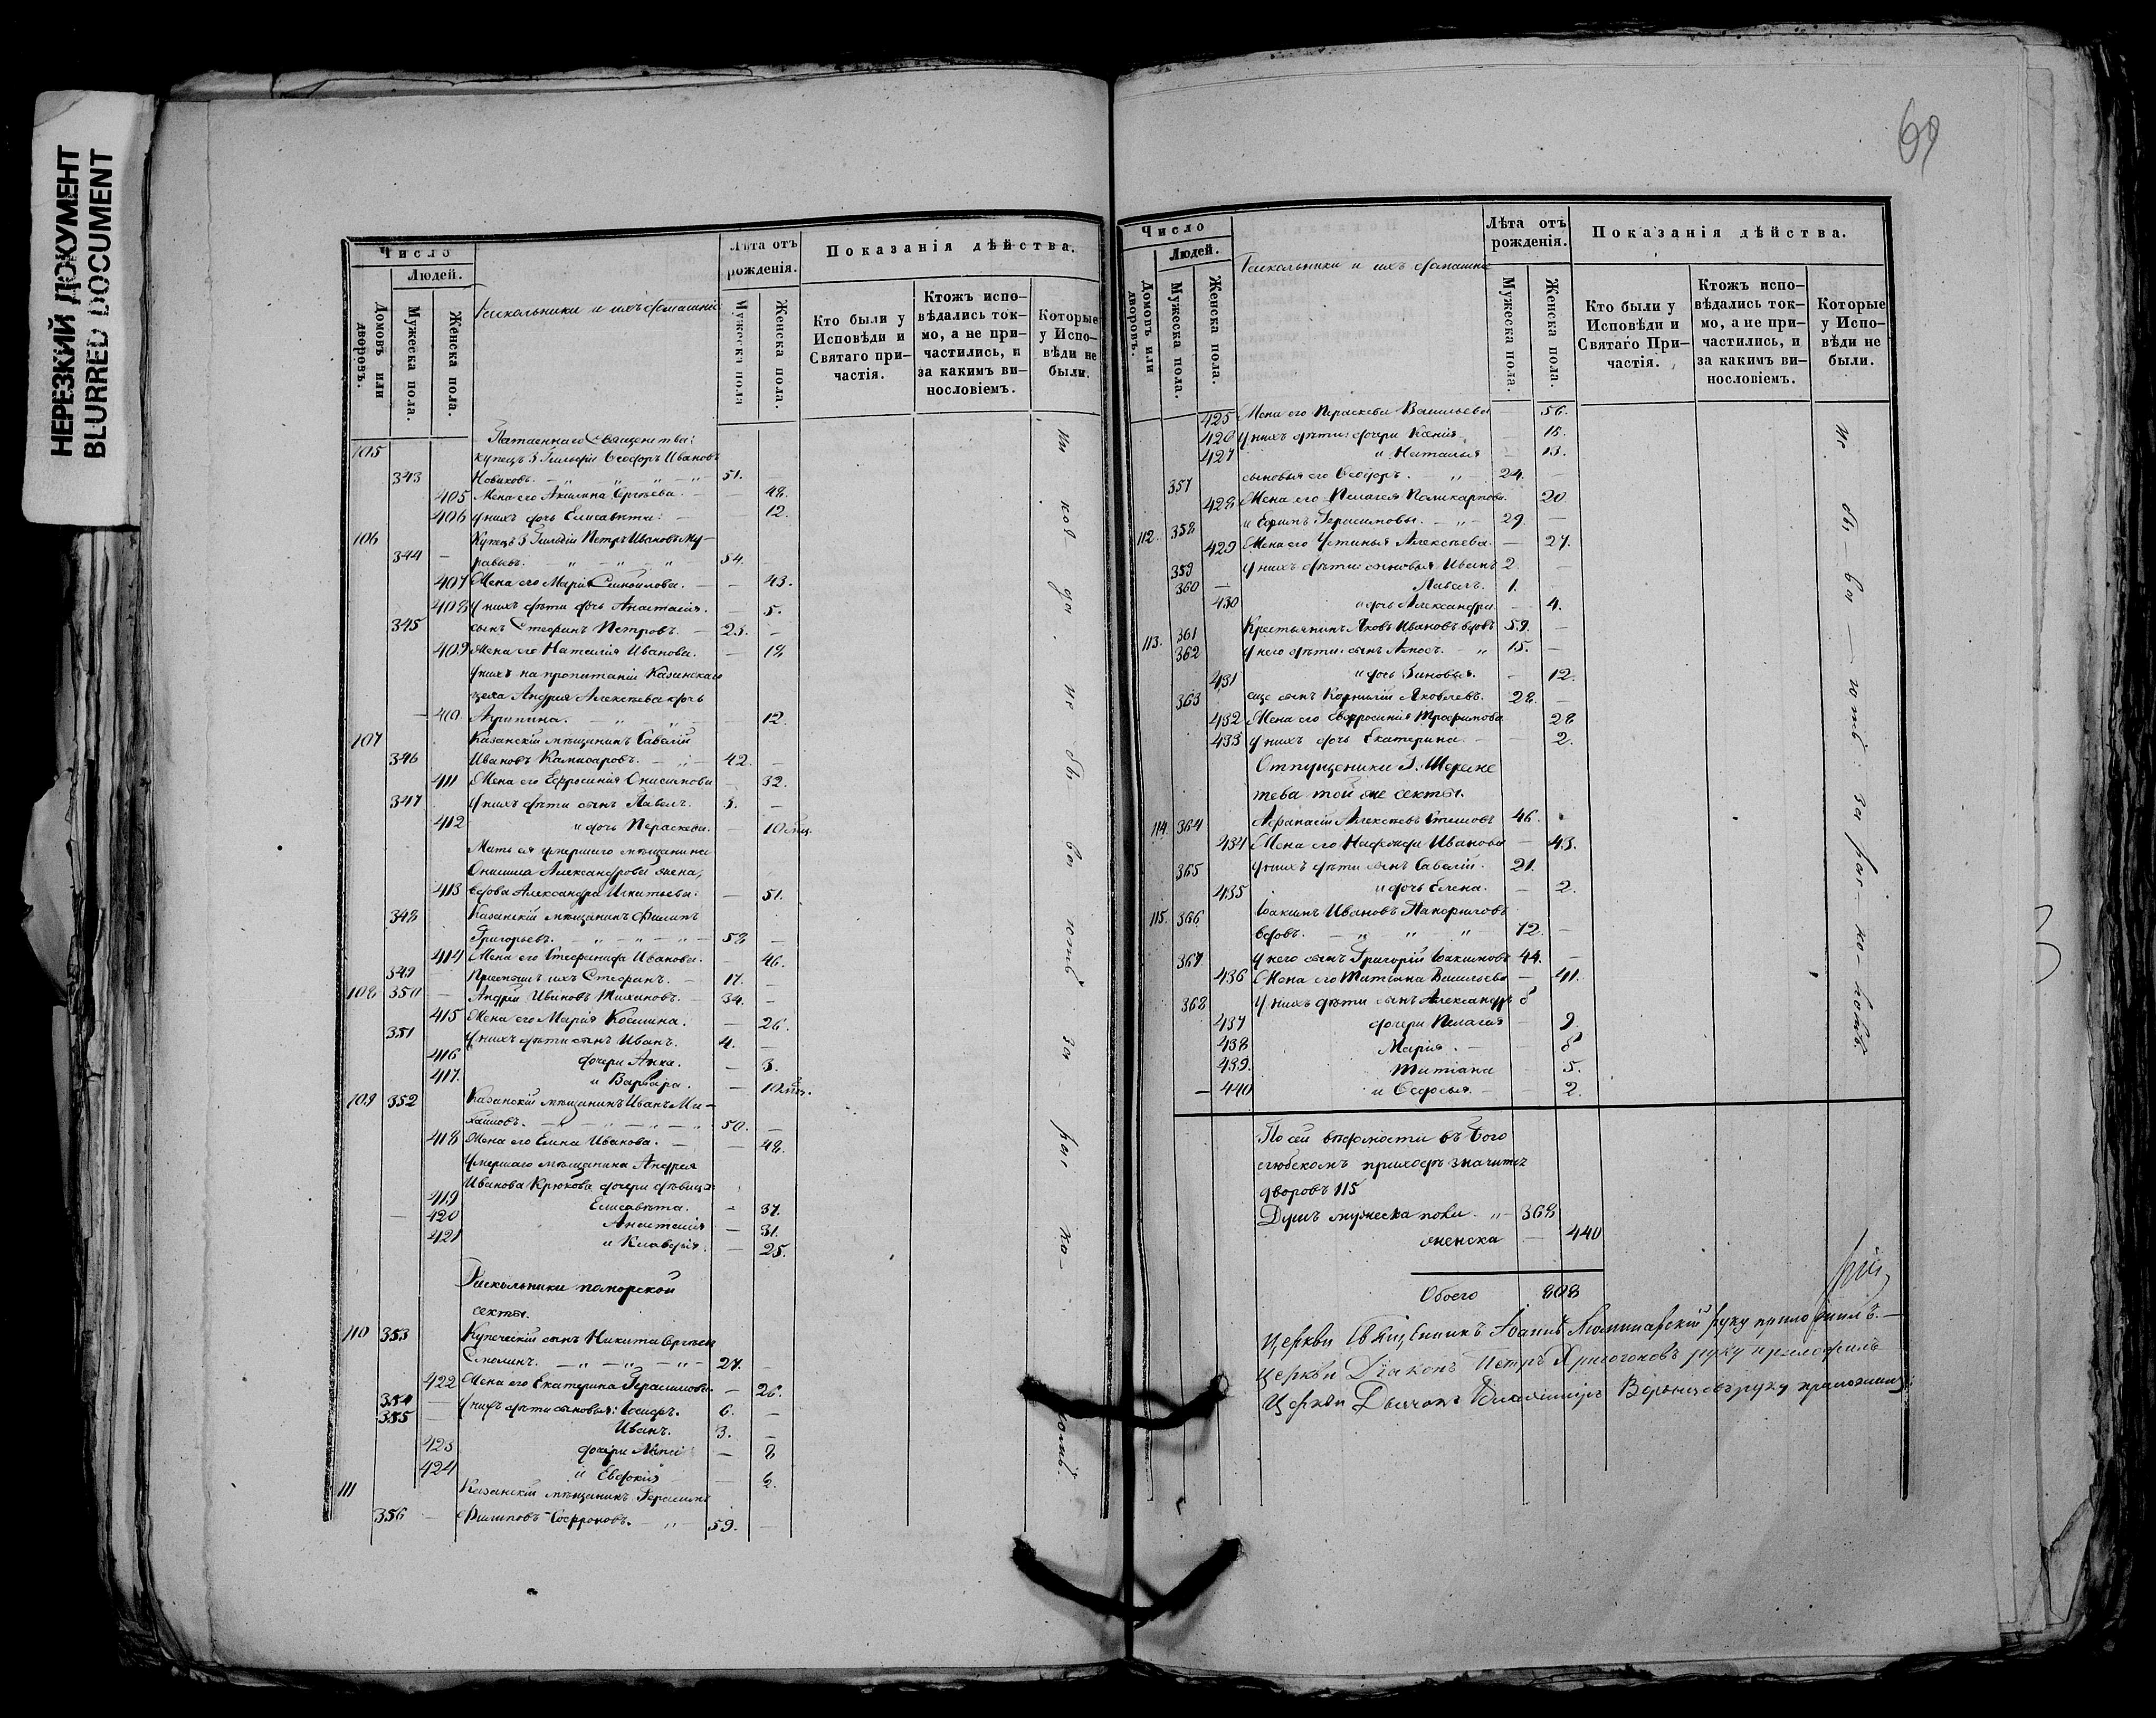 НЕРЕЗКИЙ ДОКУМЕНТ
BLURRED DOCUMENT
Число
Людей.
Домовъ или дворовъ.
Мужеска пола.
Женска пола.
Раскольники и ихъ домашніе
Лѣта отъ рожденія.
Мужеска пола
Женска пола.
Показанія дѣйства.
Кто были у Исповѣди и Святаго при-частія.
Ктожъ испо-вѣдались ток-мо, а не при-частились, и за какимъ ви-нословіемъ.
Которые у Испо-вѣди не были.
священства:
105 купецъ 3 Гильдіи Ѳеодоръ Ивановъ
343 Новиковъ. 51.
405 Жена его Акилина Сергѣева. 48.
406 у нихъ дочь Елисавета: 12.
106 Купецъ 3 Гильдіи Петръ Ивановъ Му-
344 равьевъ. 54.
407 Жена его Марія Самойлова. 43.
408 у нихъ дѣти дочь Анастасія. 5.
345 сынъ Стефанъ Петровъ. 23.
409 Жена его Наталія Иванова. 18
у нихъ на пропитаніи Казанскаго
цеха Андрея Алексѣева дочь
410. Агрипина. 12.
107 Казанскій мѣщанинъ Савелій
346 Ивановъ Камисаровъ. 42.
411 Жена его Ефросинія Онисимова 32.
347 у нихъ дѣти сынъ Павелъ. 3.
412 и дочь Параскева. 10 мѣц.
Мать ея умершаго мѣщанина
Онисима Александрова жена,
413 вдова Александра Игнатьева: 51.
348 Казанскій мѣщанинъ Филипъ
Григорьевъ. 58
414 Жена его Стефанида Иванова. 46.
349 Пріемышъ ихъ Стефанъ. 17.
108 350 Андрей Ивановъ Тихановъ. 34.
415 Жена его Марія Космина. 26.
351 у нихъ дѣти сынъ Иванъ. 4.
416 дочери Анна. 3.
417. и Варвара. 10 мѣц.
109 352 Казанскій мѣщанинъ Иванъ Ми-
хайловъ. 50.
418 Жена его Елена Иванова. 48.
Умершаго мѣщанина Андрея
Иванова Крюкова дочери дѣвицы
419 Елисавета. 37.
420 Анастасія 31.
421 и Клавдія. 25.
Раскольники поморской
секты.
110 353 Купеческій сынъ Никита Сергѣевъ
Смолинъ. 27.
422 Жена его Екатерина Герасимова 26.
354 у нихъ дѣти сыновья: Іосифъ. 6.
355 Иванъ. 3.
423 дочери Анна 8
424 и Евдокія 2.
111 Казанскій мѣщанинъ Герасимъ
356 Филиповъ Софроновъ. 59.
Ни когда не бывають за раско-ломъ.
69
Число
Людей.
Домовъ или дворовъ.
Мужеска пола.
Женска пола.
Раскольники и ихъ домашніе
Лѣта отъ рожденія.
Мужеска пола.
Женска пола.
Показанія дѣйства.
Кто были у Исповѣди и Святаго При-частія.
Ктожъ испо-вѣдались ток-мо, а не при-частились, и за какимъ ви-нословіемъ.
Которые у Испо-вѣди не были.
425 Жена его Параскева Васильева 56.
426 у нихъ дѣти: дочери Ксенія 18.
427 и Наталья 13.
357 сыновья его Ѳеодоръ. 24.
428 Жена его Пелагея Поликарпова. 20.
112. 358 и Ефимъ Герасимовы. 29.
429 Жена его Устинья Алексѣева. 27.
359 у нихъ дѣти: сыновья Иванъ 2.
360 Павелъ. 1.
430 и дочь Александра. 4.
113. 361 Крестьянинъ Яковъ Ивановъ вдовъ 59.
362 у него дѣти: сынъ Амосъ. 15.
431 и дочь Зиновья. 12.
363 еще сынъ Корнилій Яковлевъ. 28.
432 Жена его Евфросинія Трофимова 28
433 у нихъ дочь Екатерина. 2.
Отпущеники Г. Шереме
тева той же секты.
114. 364 Афанасій Алексѣевъ 46.
434 Жена его Иванова 43.
365 у нихъ дѣти сынъ Савелій. 21.
435 и дочь Елена. 2.
115. 366 Іоакимъ Ивановъ
вдовъ. 72.
367 у него сынъ Григорій Іоакимовъ 44.
436 Жена его Татіана Васильева 41.
368 у нихъ дѣти сынъ Александръ 8
437 дочери Пелагея 9.
438 Марія. 8
439. Татіана 5.
440 и Ѳедосья. 2.
Не бывають за рас-ко-ломъ.
По сей вѣдомости въ Бого
любскомъ приходѣ значится
дворовъ 115
Душъ мужеска пола 368
женска 440
Обоего 808
Церкви Священникъ Іоаннъ руку приложилъ.
Церкви Діаконъ Петръ Хрисогоновъ руку приложилъ
Церкви Дьячокъ Владиміръ Воронцовъ руку приложилъ